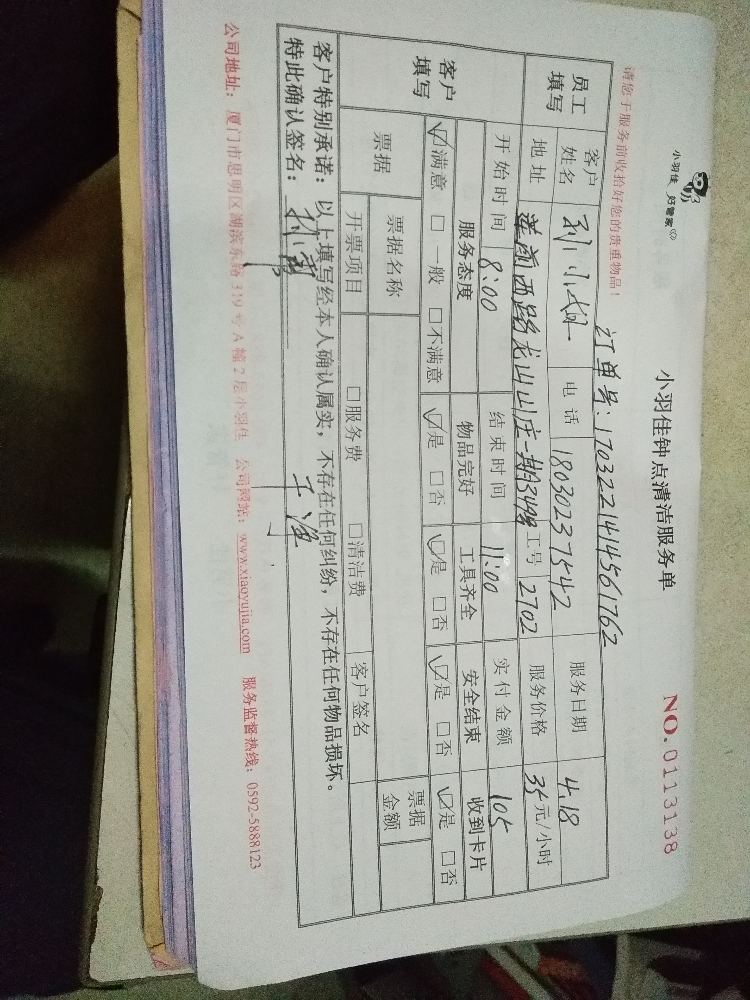 小羽佳 好管家
小羽佳钟点清洁服务单
NO. 0113138
请您于服务前收拾好您的贵重物品！
订单号：1703221414561762
员工填写 客户姓名 孙小姐 电话 18030237542 服务日期 4.18
地址 莲前西路龙山山庄一期349号 工号 2702 服务价格 35元/小时
开始时间 8:00 结束时间 11:00 实付金额 105
客户填写 服务态度 物品完好 工具齐全 安全结束 收到卡片
☑满意 □一般 □不满意 ☑是 □否 ☑是 □否 ☑是 □否 ☑是 □否
票据 票据名称 票据金额
开票项目 □服务费 □清洁费 客户签名
客户特别承诺：以上填写经本人确认属实，不存在任何纠纷，不存在任何物品损坏。
特此确认签名：
公司地址：厦门市思明区湖滨东路319号A幢2层小羽佳 公司网站：www.xiaoyujia.com 服务监督热线：0592-5888123